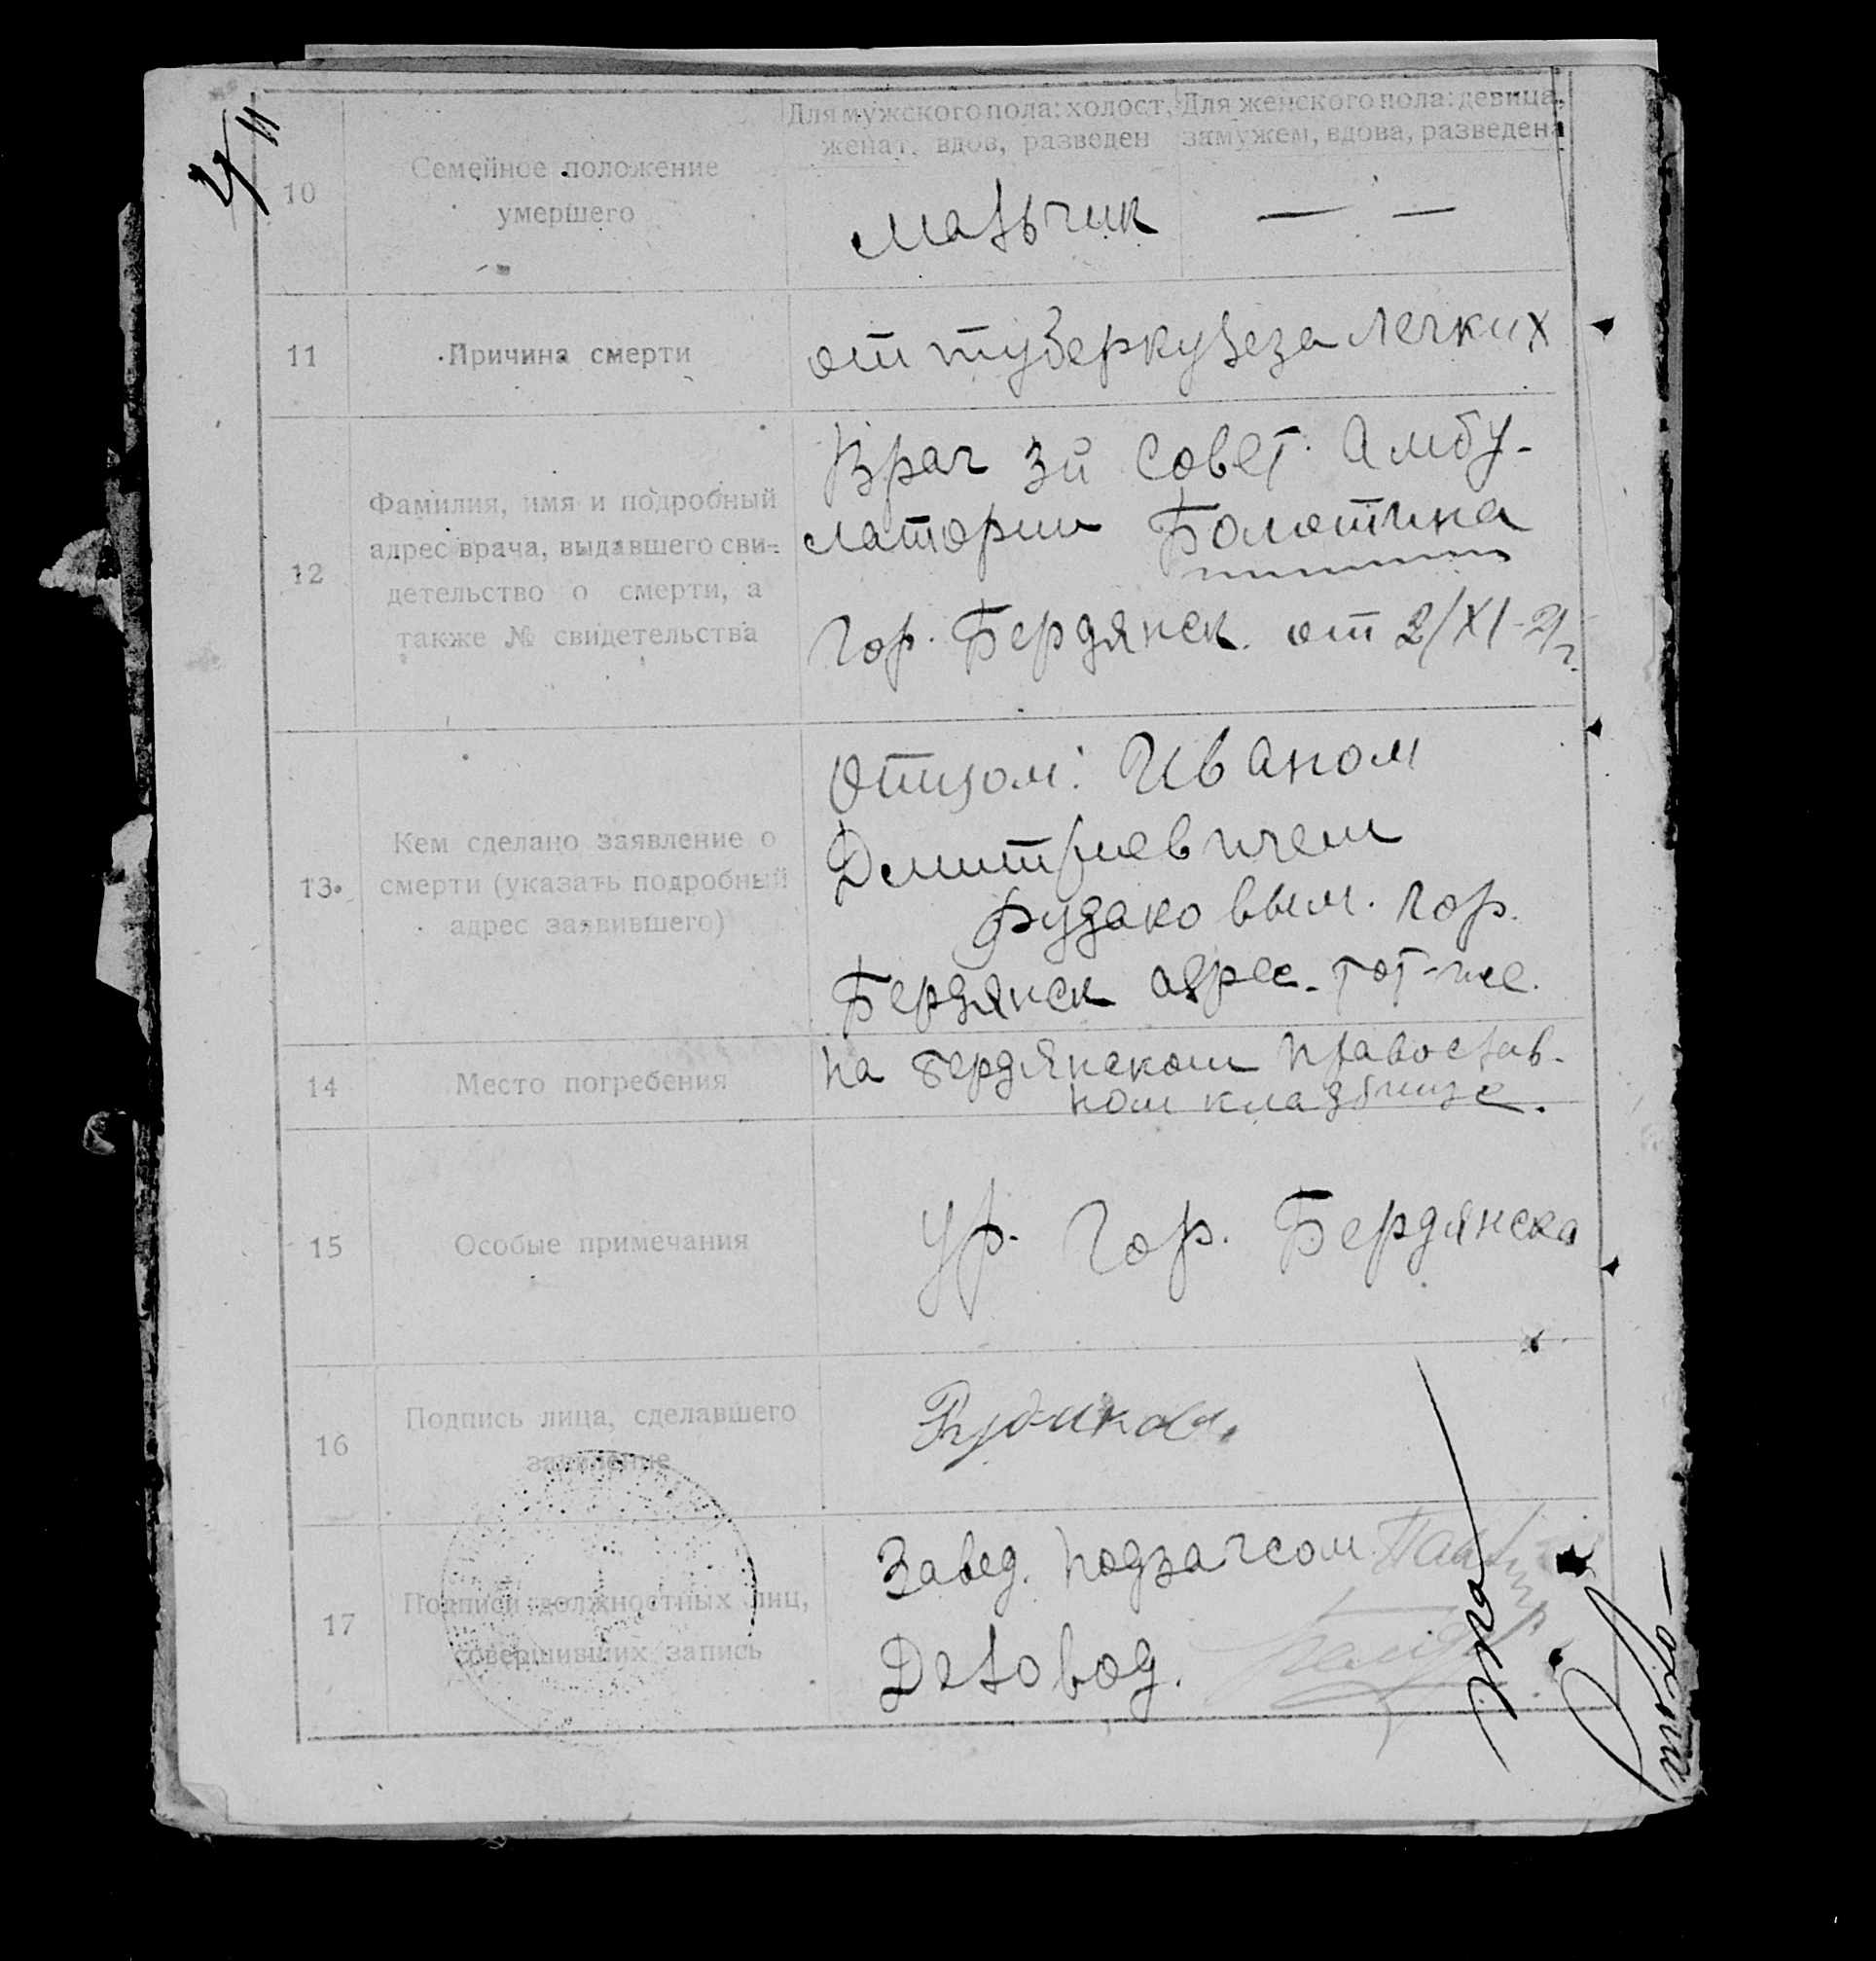 Для мужского пола: холост, женат, вдов, разведен
Для женского пола: девица, замужем, вдова, разведена
10
Семейное положение
умершего
мальчик
— —
11
Причина смерти
от туберкулеза легких
12
Фамилия, имя и подробный
адрес врача, выдавшего сви-
детельство о смерти, а
также № свидетельства
Врач 3й Совет. Амбу-
латории Болотина
Гор. Бердянск. от 2/XI-21г.
13
Кем сделано заявление о
смерти (указать подробный
адрес заявившего)
Отцом: Иваном
Дмитриевичем
Рудаковым. Гор.
Бердянск адрес. тот-же.
14
Место погребения
на бердянском православ-
ном кладбище.
15
Особые примечания
Ур. Гор. Бердянска
16
Подпись лица, сделавшего
заявление
17
Подписи должностных лиц,
совершивших запись
Завед. подзагсом
Деловод.